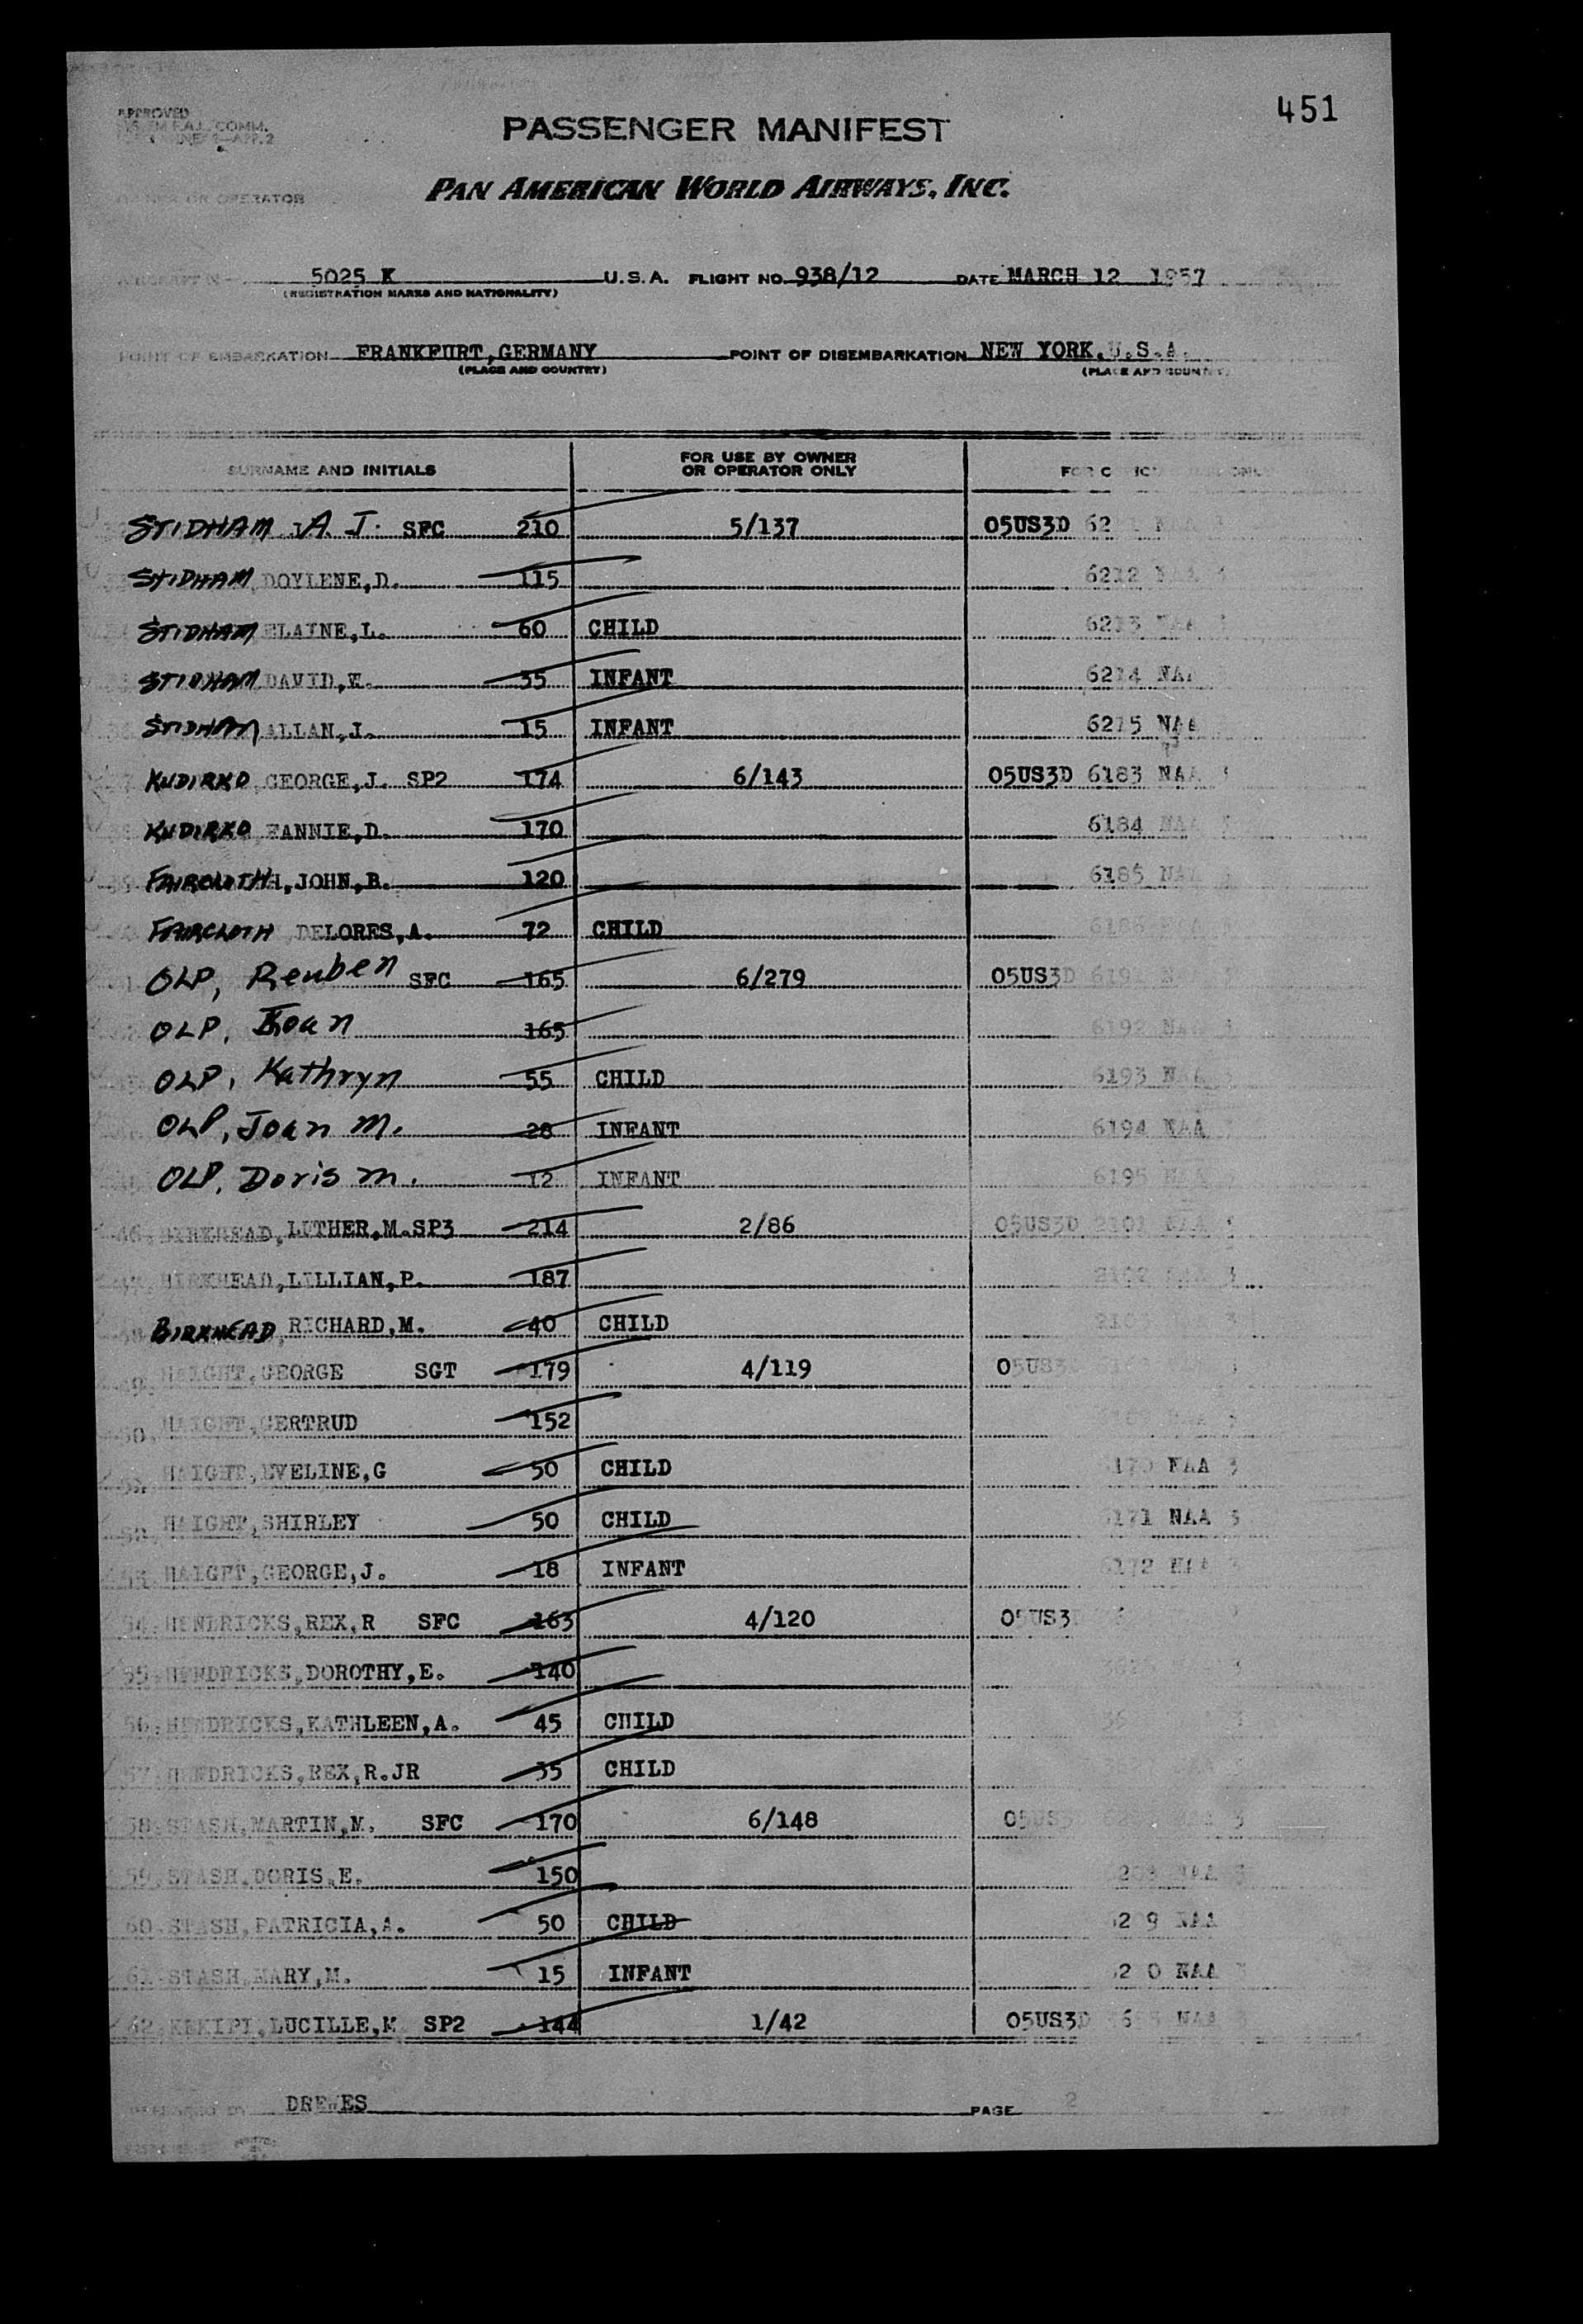 451
APPROVED
COMM.
PASSENGER MANIFEST
PAN AMERICAN WORLD AIRWAYS, INC.
OWNER OR OPERATOR
5025 K U.S.A. FLIGHT NO. 938/12 DATE MARCH 12 1957
(REGISTRATION MARKS AND NATIONALITY)
POINT OF EMBARKATION FRANKFURT,GERMANY POINT OF DISEMBARKATION NEW YORK,U.S.A.
(PLACE AND COUNTRY) (PLACE AND COUNTRY)
SURNAME AND INITIALS FOR USE BY OWNER OR OPERATOR ONLY
STIDHAM, A J. SFC 210 5/137 05US3D
STIDHAM, DOYLENE,D. 115 6212 NAA 3
STIDHAM ELAINE,L. 60 CHILD 6213 NAA
STIDHAM DAVID, 35 INFANT 6214 NAA
STIDHAM ALLAN,J. 15 INFANT 6215 NAA
KUDIRKO, GEORGE,J. SP2 174 6/143 05US3D 6183 NAA 3
KUDIRKO FANNIE,D. 170 6184 NAA
FAIRCLOTH, JOHN,R. 120 6185 NAA
FAIRCLOTH DELORES,A. 72 CHILD 6186 NAA
OLP, Reuben SFC 165 6/279 05US3D 6191 NAA 3
OLP, Joan 165 6192 NAA 3
OLP, Kathryn 55 CHILD 6193 NAA 3
OLP, Joan M. 28 INFANT 6194 NAA
OLP, Doris M. 12 INFANT 6195 NAA
46. BIRKHEAD,LUTHER,M.SP3 214 2/86 05US3D 2101 NAA 3
BIRKHEAD,LILLIAN,P. 187 2102 NAA 3
BIRKHEAD, RICHARD,M. 40 CHILD
49. HAIGHT,GEORGE SGT 179 4/119 05US3D
50. HAIGHT,GERTRUD 152
HAIGHT,EVELINE,G 50 CHILD 6170 NAA 3
HAIGHT,SHIRLEY 50 CHILD 6171 NAA 3
HAIGHT,GEORGE,J. 18 INFANT 6172 NAA
54. HENDRICKS,REX,R SFC 163 4/120 05US3
55. HENDRICKS,DOROTHY,E. 140
56. HENDRICKS,KATHLEEN,A. 45 CHILD
57. HENDRICKS,REX,R.JR 35 CHILD
58. STASH,MARTIN,M. SFC 170 6/148 05US3D
59. STASH,DORIS,E. 150
60. STASH,PATRICIA,A. 50 CHILD
61. STASH,MARY,M. 15 INFANT
62. LUCILLE,M SP2 144 1/42 05US3D
DREWES PAGE 2